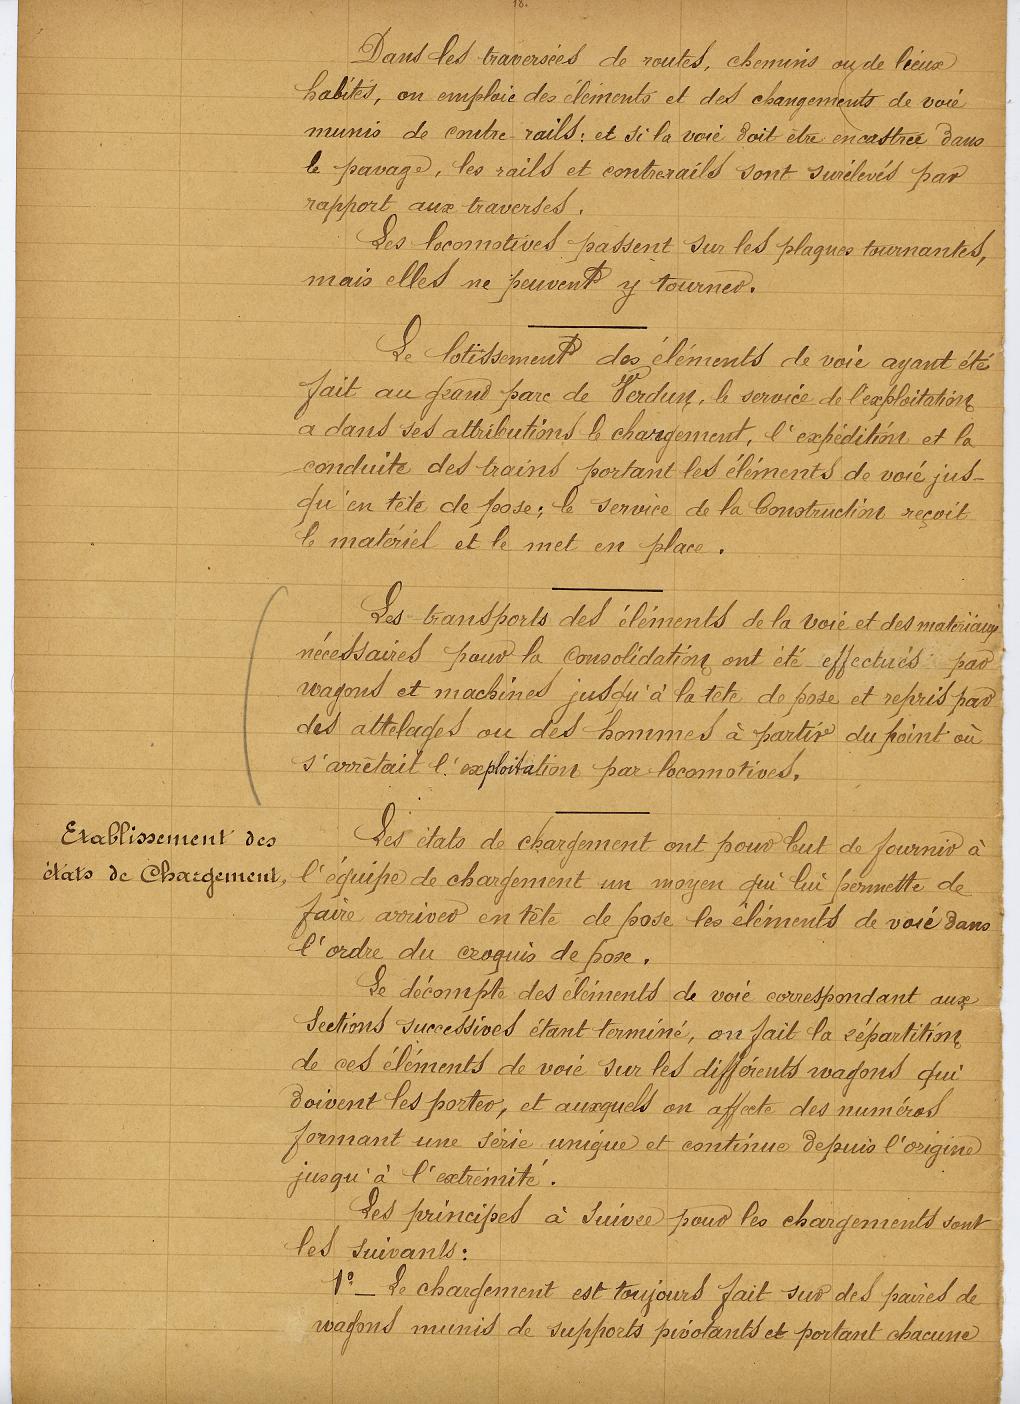 18.
Dans les traversées de routes, chemins ou de lieux
habités, on emploie des éléments et des changements de voie
munis de contre-rails: et si la voie doit être encastrée dans
le pavage, les rails et contrerails sont surélevés par
rapport aux traverses.
Les locomotives passent sur les plaques tournantes,
mais elles ne peuvent y tourner.
Le lotissement des éléments de voie ayant été
fait au grand parc de Verdun, le service de l'exploitation
a dans ses attributions le chargement, l'expédition et la
conduite des trains portant les éléments de voie jus-
qu'en tête de pose; le service de la Construction reçoit
le matériel et le met en place.
Les transports des éléments de la voie et des matériaux
nécessaires pour la consolidation ont été effectués par
wagons et machines jusqu'à la tête de pose et repris par
des attelages ou des hommes à partir du point où
s'arrêtait l'exploitation par locomotives.
Etablissement des
états de Chargement.
Les états de chargement ont pour but de fournir à
l'équipe de chargement un moyen qui lui permette de
faire arriver en tête de pose les éléments de voie dans
l'ordre du croquis de pose.
Le décompte des éléments de voie correspondant aux
Sections successives étant terminé, on fait la répartition
de ces éléments de voie sur les différents wagons qui
doivent les porter, et auxquels on affecte des numéros
formant une série unique et continue depuis l'origine
jusqu'à l'extrémité.
Les principes à suivre pour les chargements sont
les suivants:
1º_ Le chargement est toujours fait sur des paires de
wagons munis de supports pivotants et portant chacune